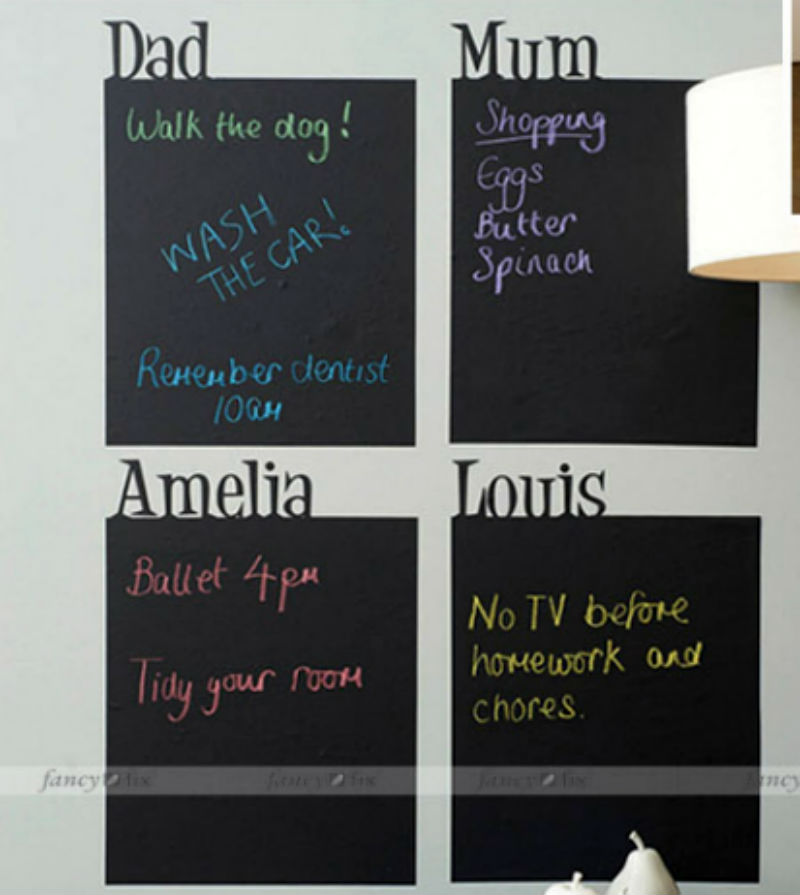 Dad
Walk the dog!
WASH
THE CAR!
Remember dentist
10am
Mum
Shopping
Eggs
Butter
Spinach
Amelia
Ballet 4pm
Tidy your room
Louis
No TV before
homework and
chores.
fancy fix
fancy fix
fancy fix
fancy